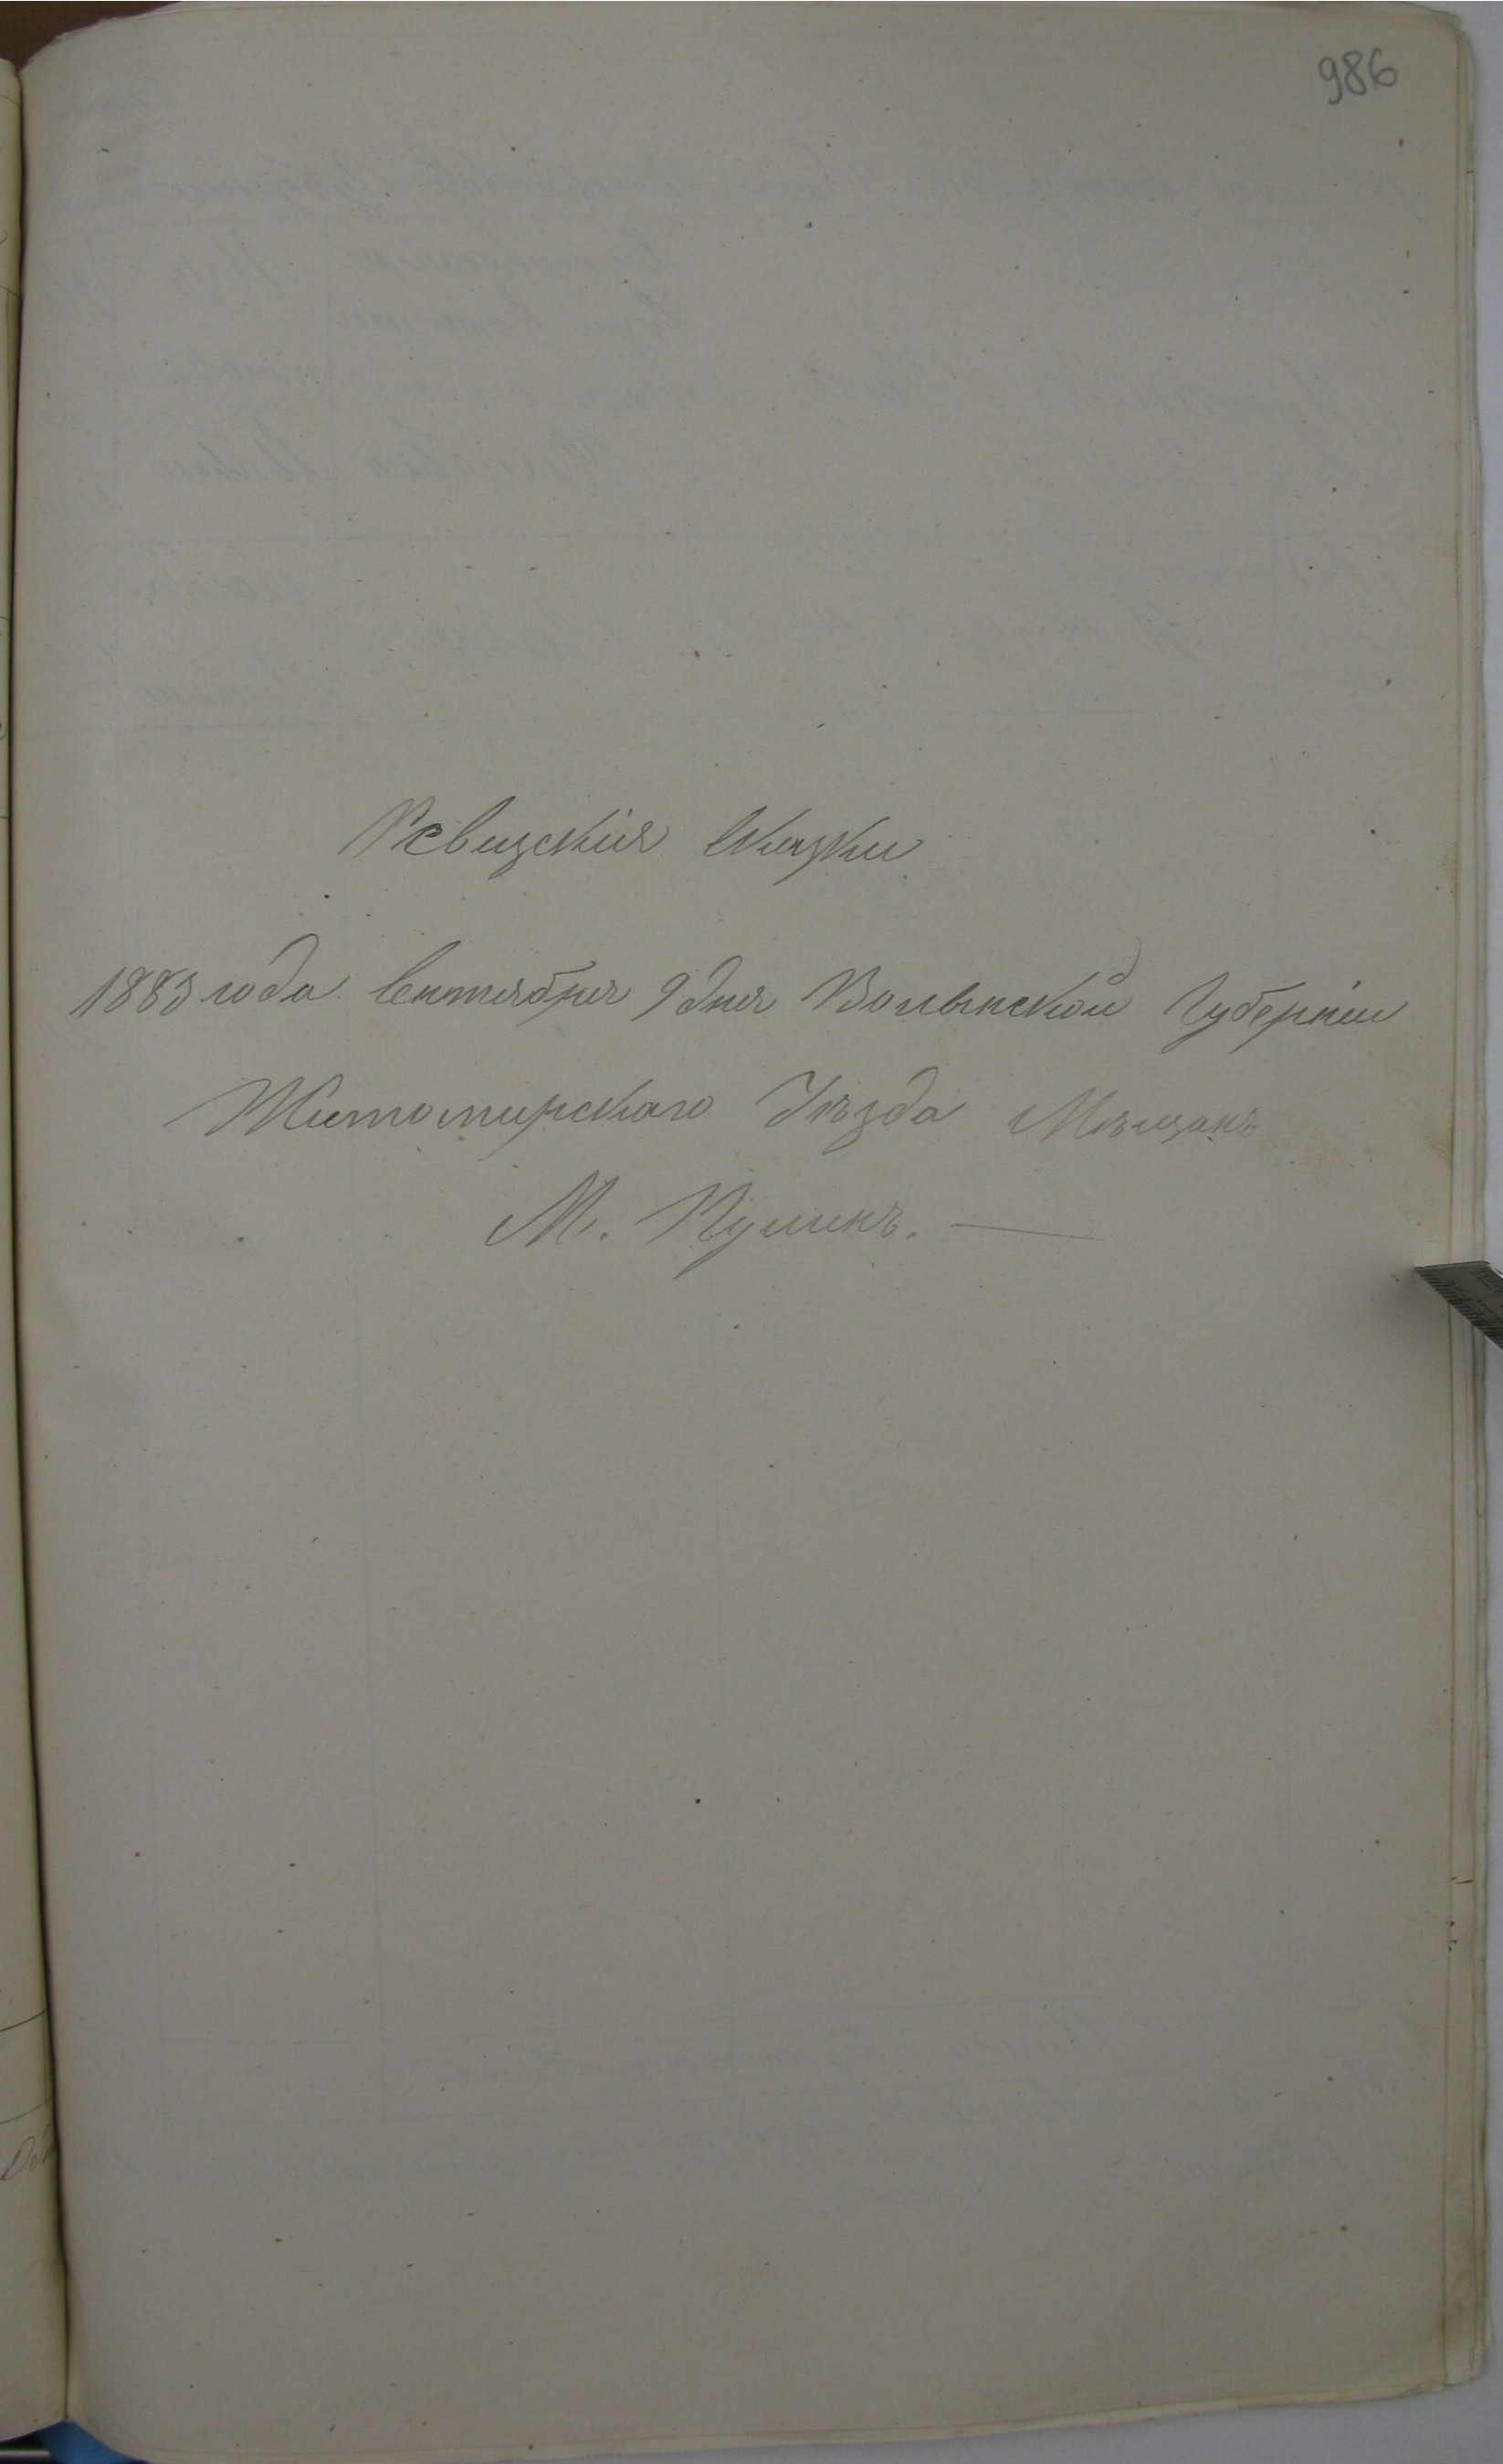 986
Ревизскія Сказки
1883 года Сентября 9 дня Волынской Губерніи
Житомирскаго Уѣзда Мѣщанъ
М. Пулинъ.